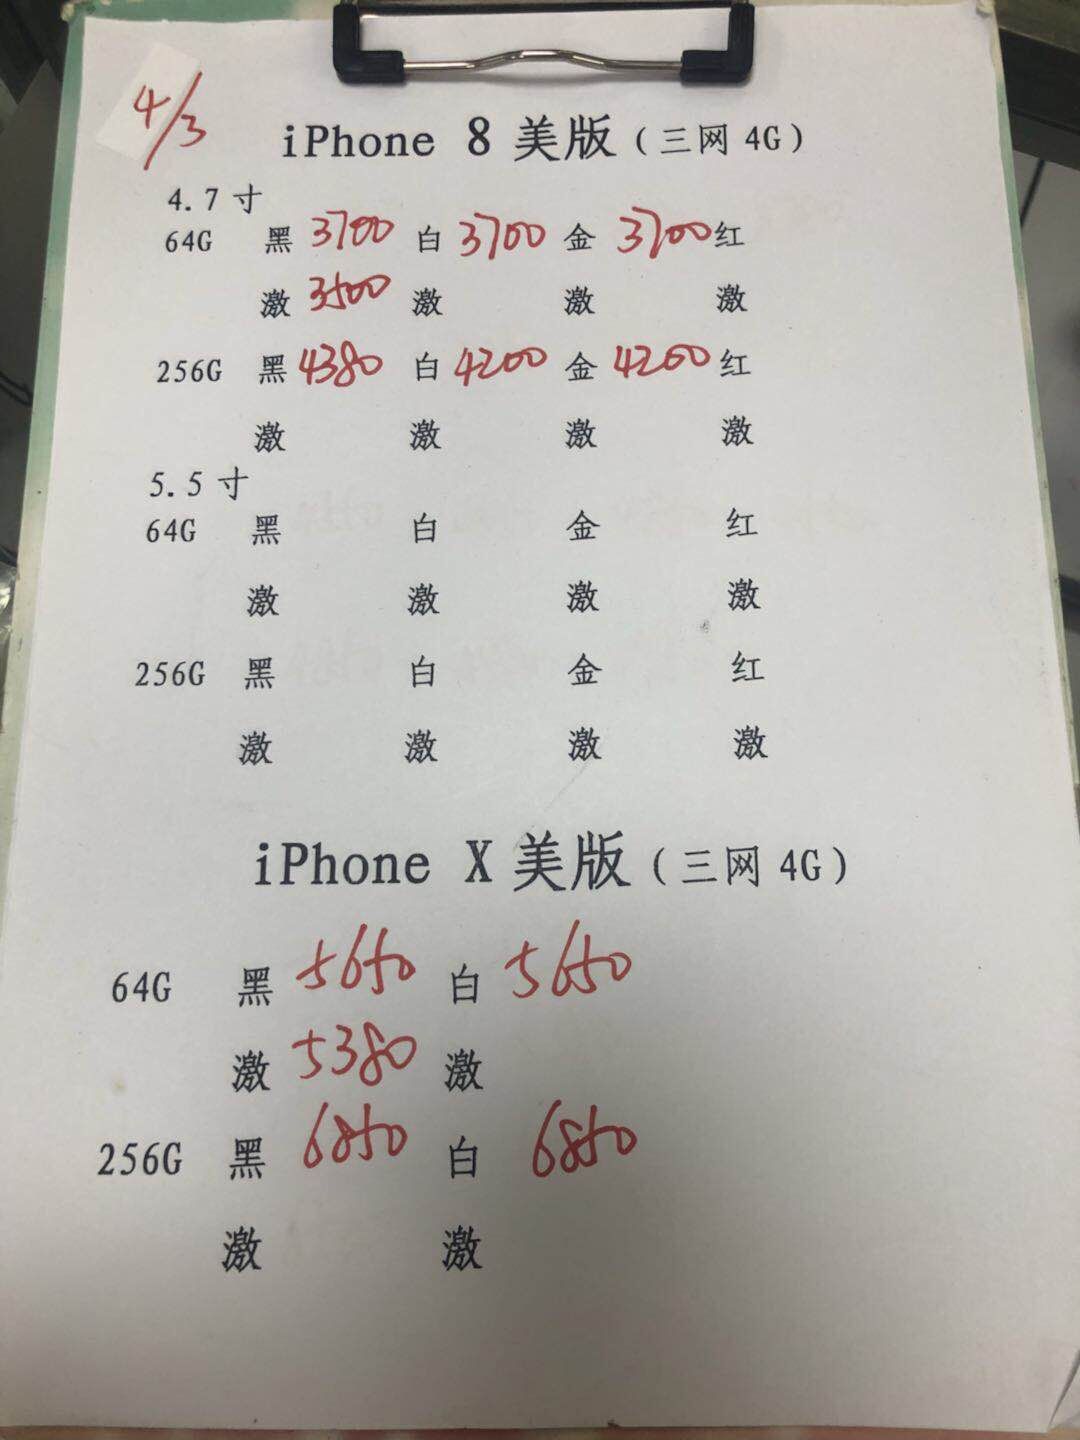 4/3
iPhone 8 美版（三网 4G）
4.7 寸
64G 黑 3700 白 3700 金 3700 红
激 3500 激 激 激
256G 黑 4380 白 4200 金 4200 红
激 激 激 激
5.5 寸
64G 黑 白 金 红
激 激 激 激
256G 黑 白 金 红
激 激 激 激
iPhone X 美版（三网 4G）
64G 黑 5650 白 5650
激 5380 激
256G 黑 6850 白 6850
激 激